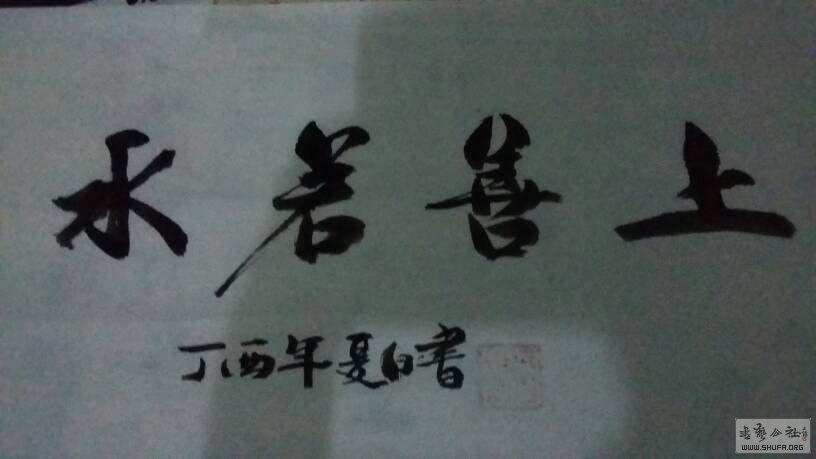 上善若水
丁酉年夏白书
书艺公社
WWW.SHUFA.ORG